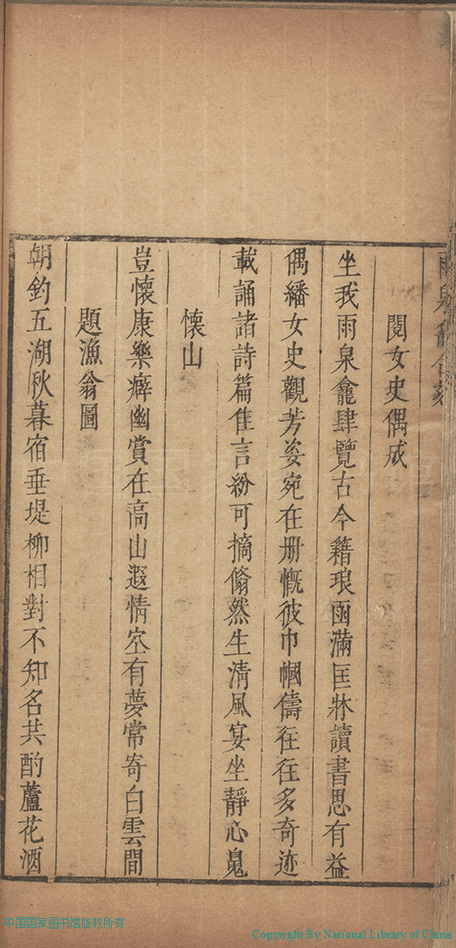 雨泉龕合刻
閱女史偶成
坐我雨泉龕肆覽古今籍琅函滿匡牀讀書思有益
偶繙女史觀芳姿宛在册慨彼巾幗儔往往多奇迹
載誦諸詩篇佳言紛可摘翛然生清風宴坐靜心
懷山
豈懷康樂癖幽賞在高山遐情空有夢常寄白雲間
題漁翁圖
朝釣五湖秋暮宿垂堤柳相對不知名共酌蘆花酒
中国国家图书馆版权所有
Copyright By National Library of China